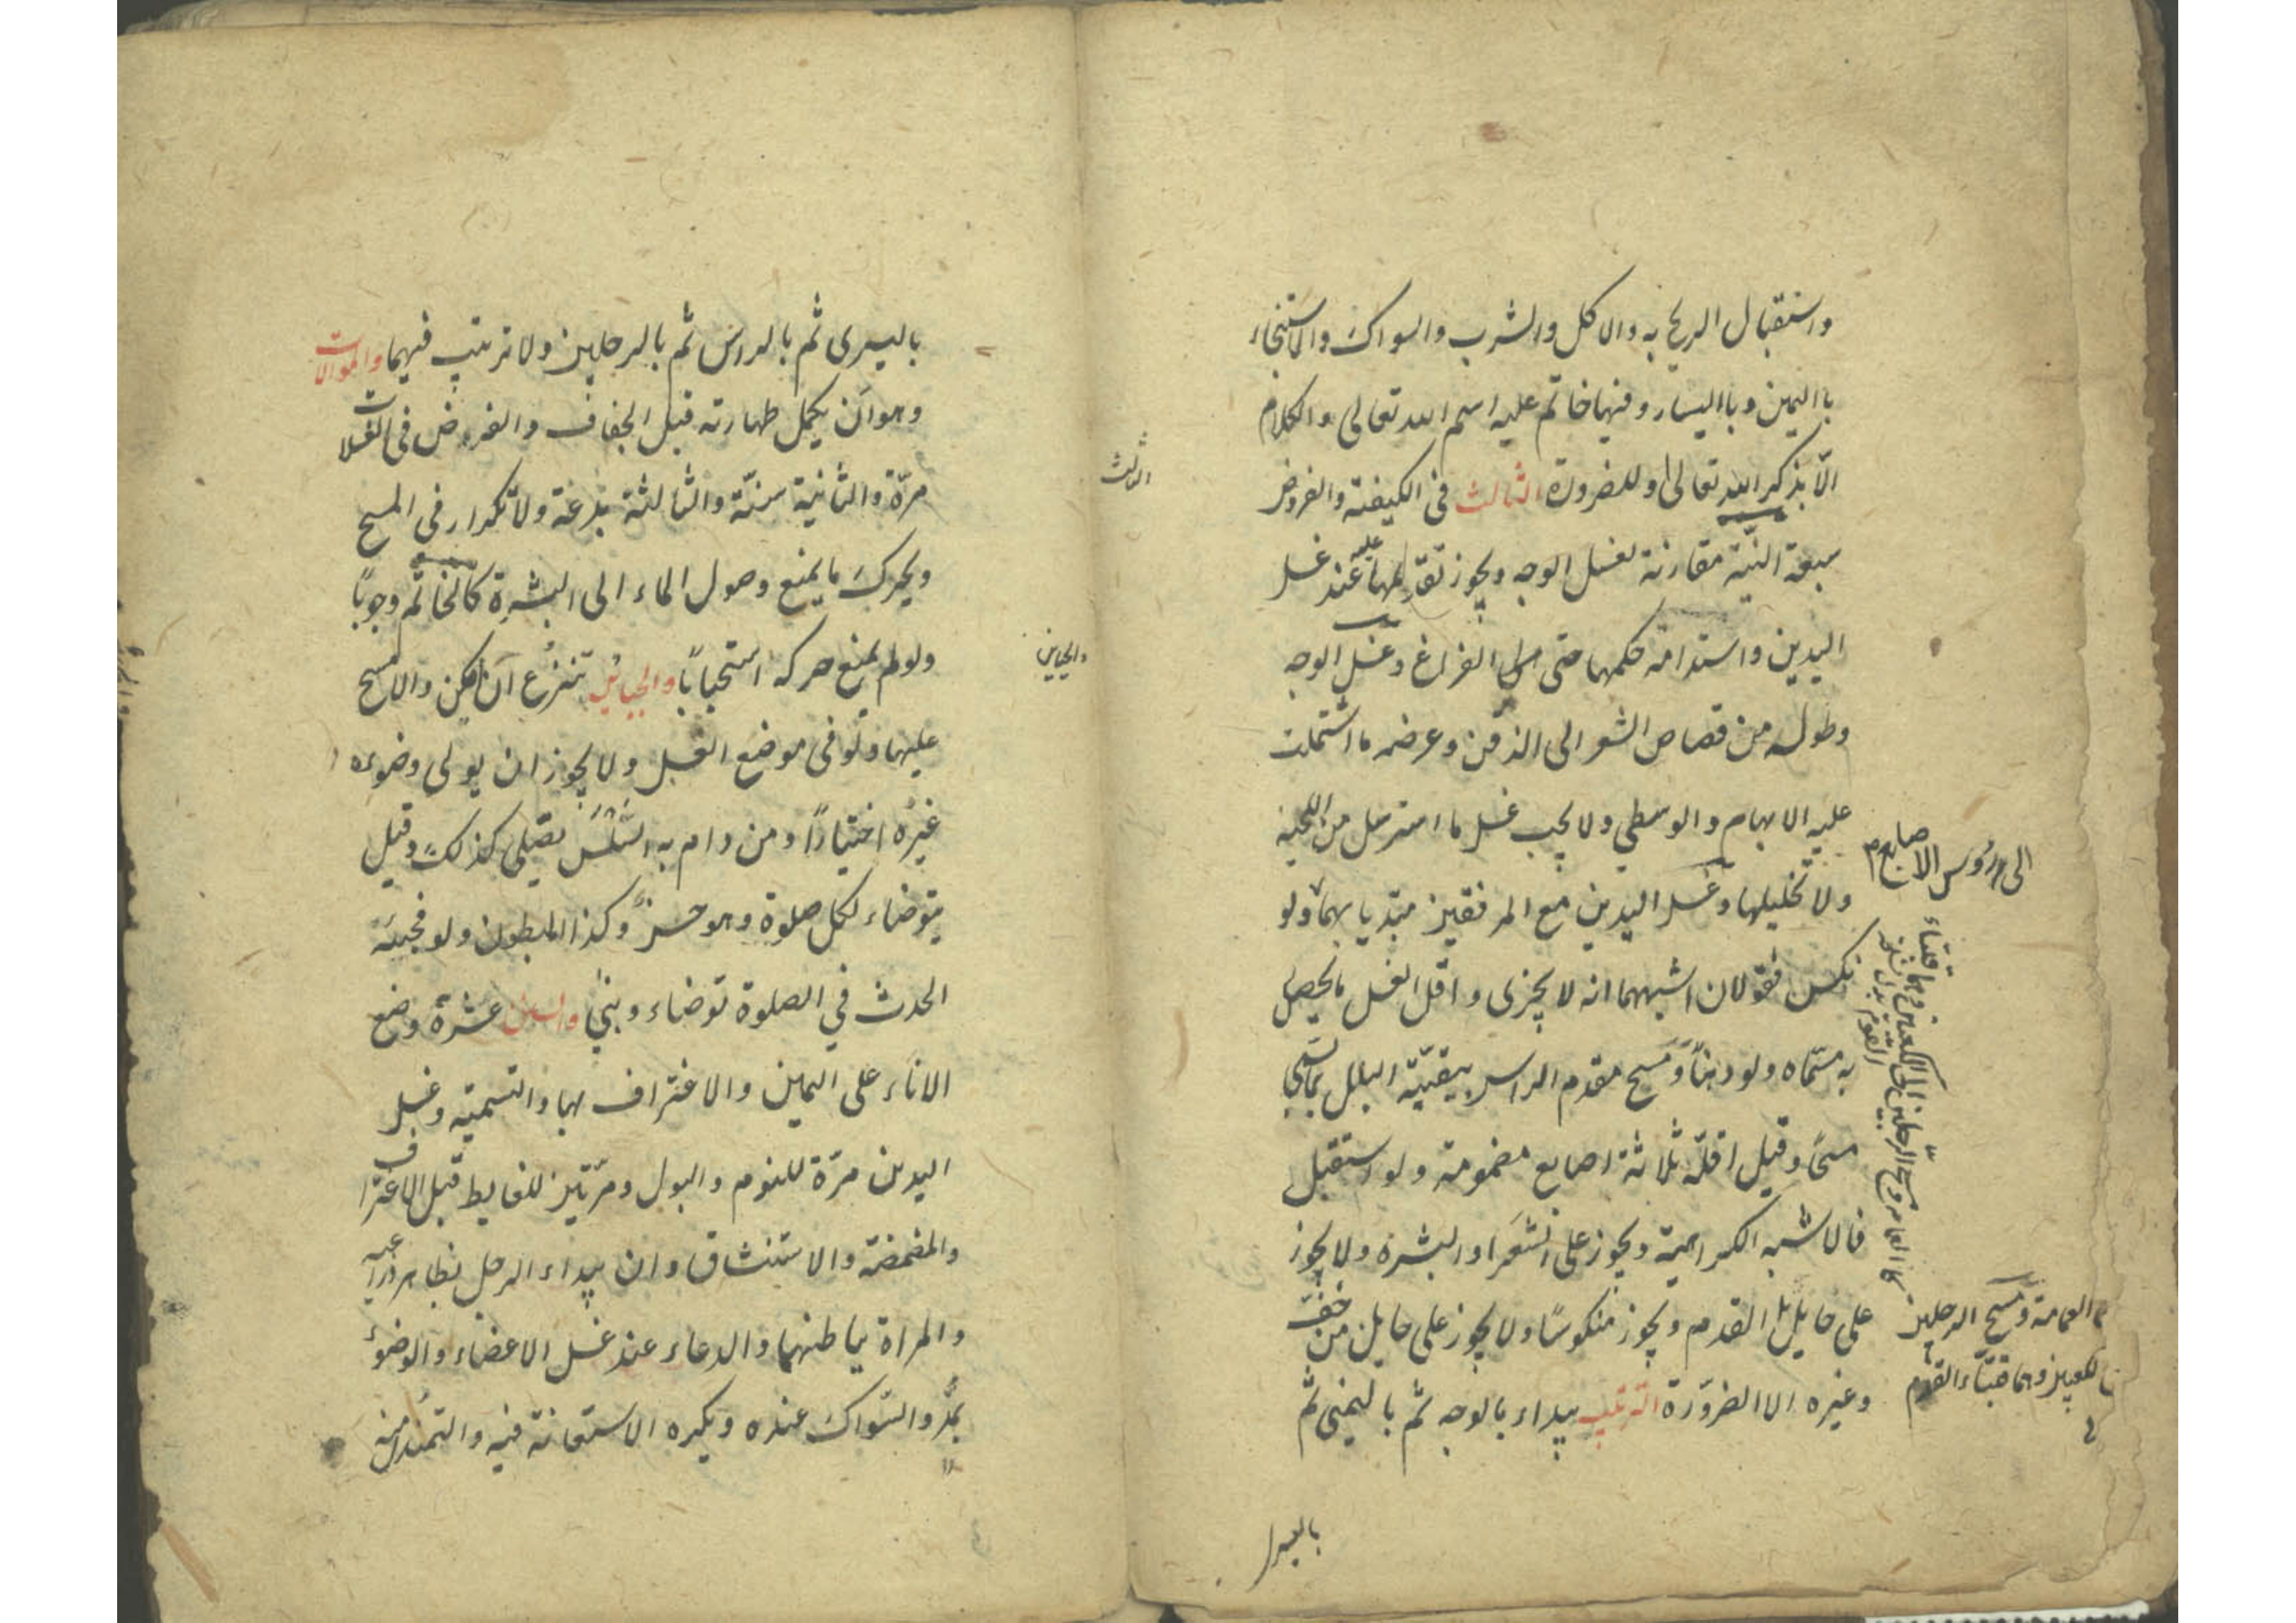 واستقبال الريح به والاكل والشرب والسواك والاستنجاء
باليمين وباليسار وفيها خاتم عليه اسم الله تعالى والكلام
الّا بذكر الله تعالى او للضرورة الثالث فى الكيفية والفروض
سبعة النيّة مقارنة لغسل الوجه ويجوز تقديمها عند غسل
اليدين واستدامة حكمها حتى الفراغ وغسل الوجه
وطوله من قصاص الشعر الى الذقن وعرضه ما اشتملت
عليه الابهام والوسطى ولا يجب غسل ما استرسل من اللحية
ولا تخليلها وغسل اليدين مع المرفقين مبتديا بهما ولو
نكس فقولان اشبههما انه لا يجزى واقل الغسل ما يحصل
به مسمّاه ولو دهناً ومسح مقدم الراس ببقيّة البلل بما يسمى
مسحًا وقيل اقلّه ثلاثة اصابع مضمومة ولو استقبل
فالاشبه الكراهية ويجوز على الشعر او البشرة ولا يجوز
على حايل القدم ويجوز منكوسًا ولا يجوز على حايل من خفّ
وغيره الا الضرورة الترتيب يبداء بالوجه ثم باليمنى ثم
الى رؤس الاصابع
العمامة ومسح الرجلين
الكعبين وهما قبّتاء القدم
الثالث
باليسرى
باليسرى ثم بالراس ثم بالرجلين ولا ترتيب فيهما والموالات
وهو ان يكمل طهارته قبل الجفاف والفرض فى الغسلات
مرّة والثانية سنّة والثالثة بدعة ولا تكرار فى المسح
ويحرك ما يمنع وصول الماء الى البشرة كالخاتم وجوبًا
ولو لم يمنع حركه استحبابًا والجبائر تنزع ان امكن والا مسح
عليها ولو فى موضع الغسل ولا يجوز ان يولى وضوءه
غيره اختيارًا ومن دام به السّلس يصلّى كذلك وقيل
يتوضاء لكل صلوة وهو حسن وكذا المبطون ولو فجئه
الحدث في الصلوة توضاء وبنى والسنن عشرة وضع
الاناء على اليمين والاغتراف بها والتسمية وغسل
اليدين مرّة للنوم والبول ومرّتين للغايط قبل الاغتراف
والمضمضة والاستنشاق وان يبداء الرجل بظاهر ذراعيه
والمراة بباطنهما والدعاء عند غسل الاعضاء والوضوء
بمدّ والسّواك عنده ويكره الاستعانة فيه والتمندل منه